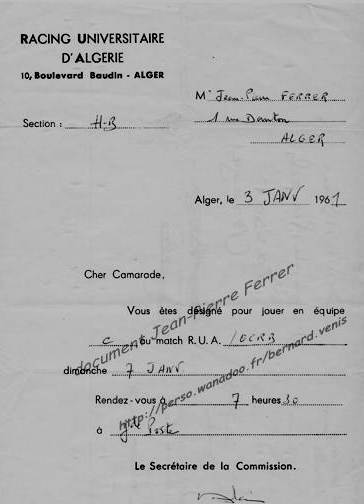 RACING UNIVERSITAIRE
D'ALGERIE
10, Boulevard Baudin - ALGER
Mr Jean-Pierre FERRER
1 rue Danton
Section : H-B
ALGER
Alger, le 3 JANV 1961
Cher Camarade,
Vous êtes désigné pour jouer en équipe
C au match R.U.A. /
dimanche 7 JANV
Rendez-vous à 7 heures 30
à Poste
Le Secrétaire de la Commission.
document Jean-Pierre Ferrer
http://perso.wanadoo.fr/bernard.venis